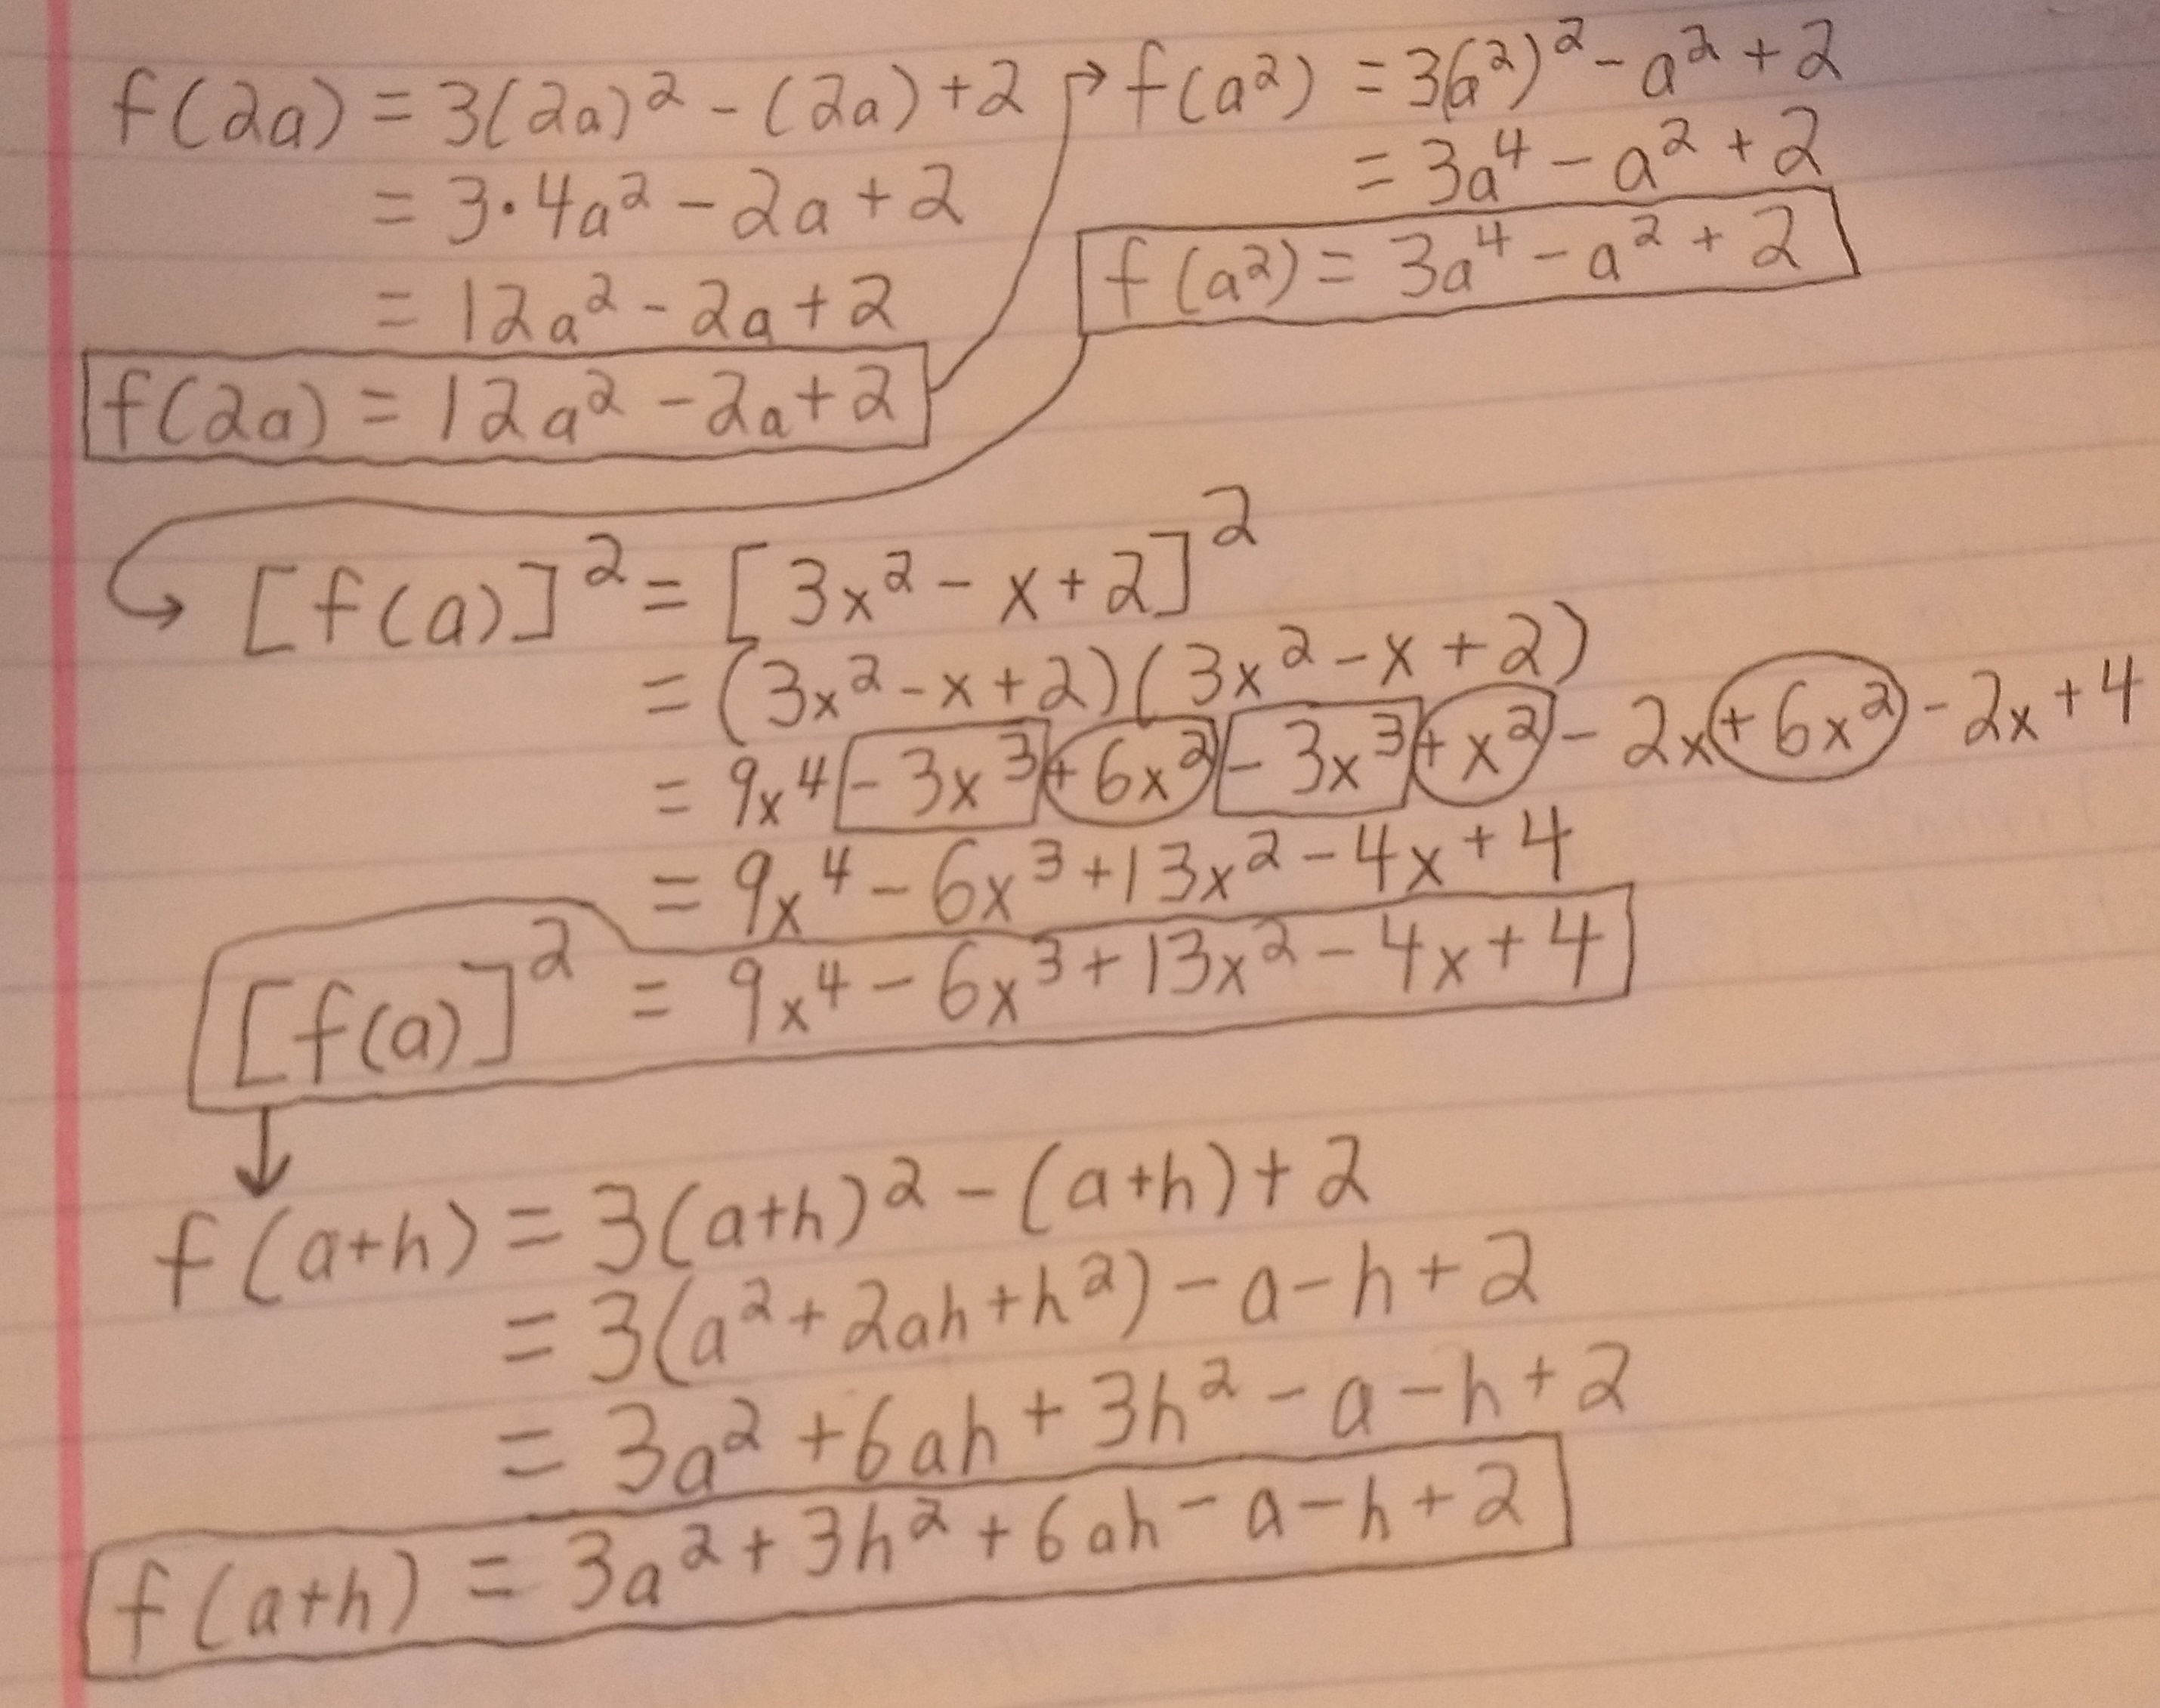 f(2a) = 3(2a)² - (2a) + 2
= 3·4a² - 2a + 2
= 12a² - 2a + 2
f(2a) = 12a² - 2a + 2
f(a²) = 3(a²)² - a² + 2
= 3a⁴ - a² + 2
f(a²) = 3a⁴ - a² + 2
[f(a)]² = [3x² - x + 2]²
= (3x² - x + 2)(3x² - x + 2)
= 9x⁴ - 3x³ + 6x² - 3x³ + x² - 2x + 6x² - 2x + 4
= 9x⁴ - 6x³ + 13x² - 4x + 4
[f(a)]² = 9x⁴ - 6x³ + 13x² - 4x + 4
f(a+h) = 3(a+h)² - (a+h) + 2
= 3(a² + 2ah + h²) - a - h + 2
= 3a² + 6ah + 3h² - a - h + 2
f(a+h) = 3a² + 3h² + 6ah - a - h + 2